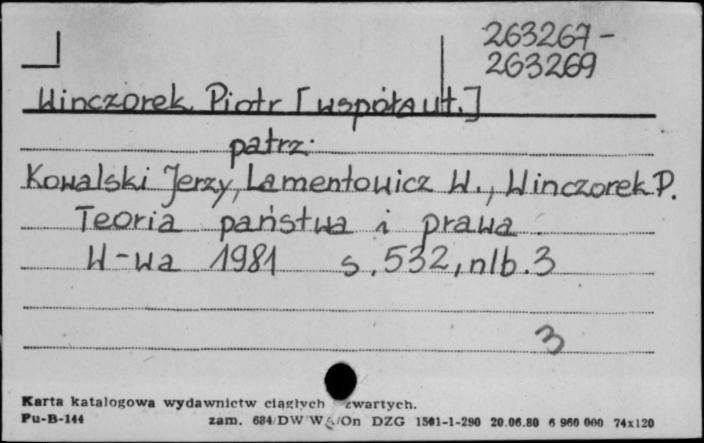 263267-
263269
Winczorek Piotr [współaut.]
patrz:
Kowalski Jerzy, Lamentowicz W., Winczorek P.
Teoria państwa i prawa.
W-wa 1981 s. 532, nlb. 3
3
Karta katalogowa wydawnictw ciągłych zwartych.
Pu-B-144 zam. 684/DW /On DZG 1501-1-290 20.06.80 6 960 000 74x120